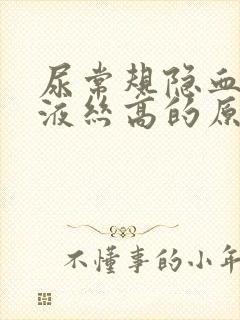 尿常规隐血
液丝高的原
不懂事的小年